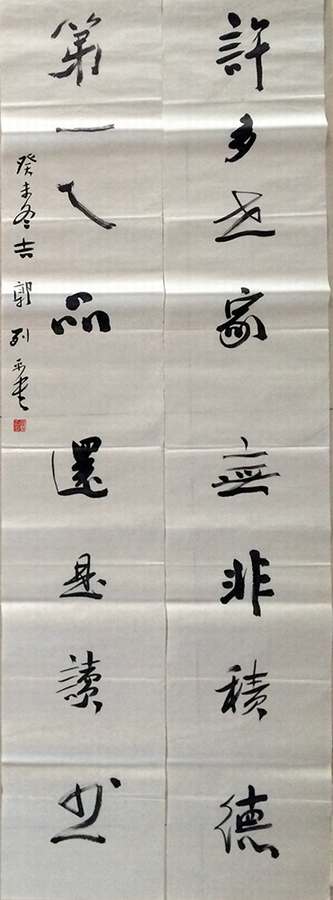 許多世家無非積德
第一人品還是讀書
癸未冬吉 郭列平書